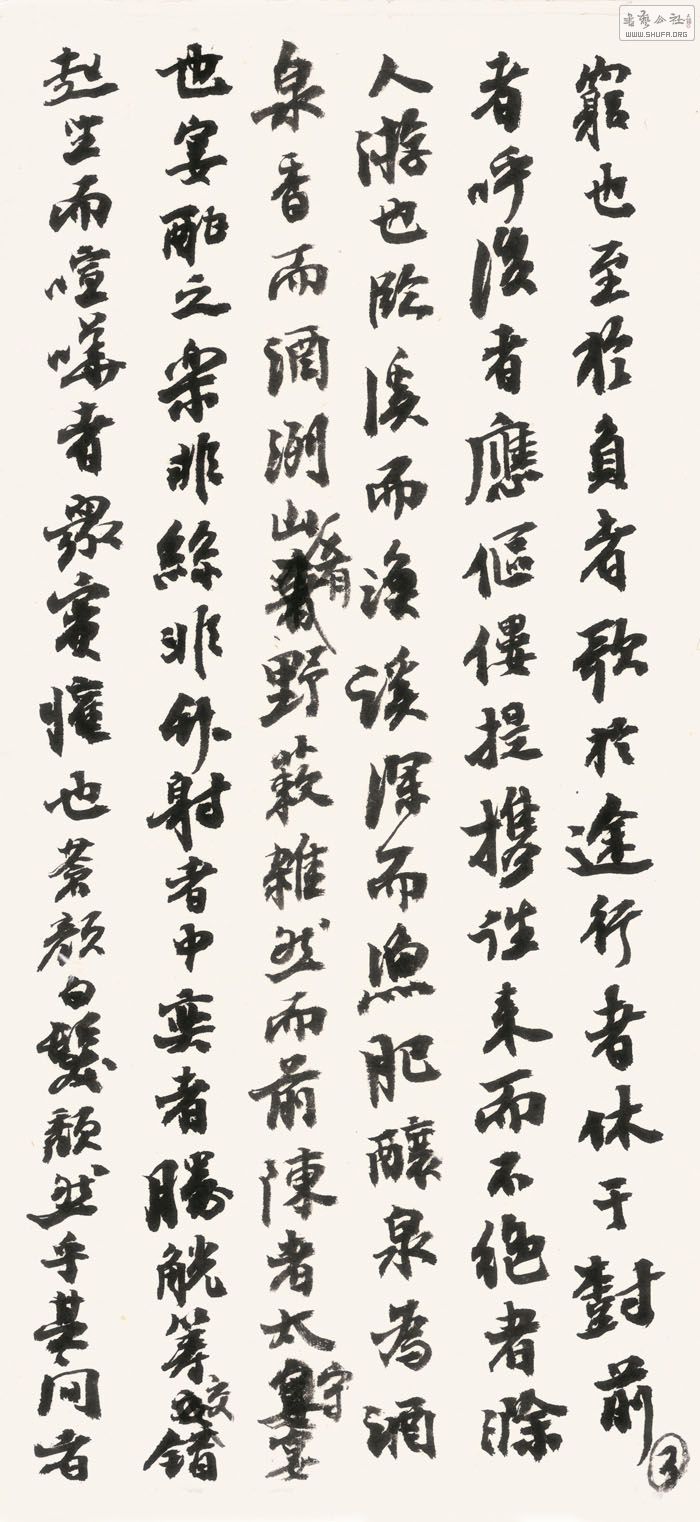 書藝公社
WWW.SHUFA.ORG
窮也至於負者歌於途行者休于樹前
者呼後者應傴僂提攜往來而不絕者滁
人游也臨溪而漁溪深而魚肥釀泉為酒
泉香而酒洌山肴野蔌雜然而前陳者太守宴
也宴酣之樂非絲非竹射者中奕者勝觥籌交錯
起坐而喧嘩者眾賓懽也蒼顏白髮頹然乎其间者
3